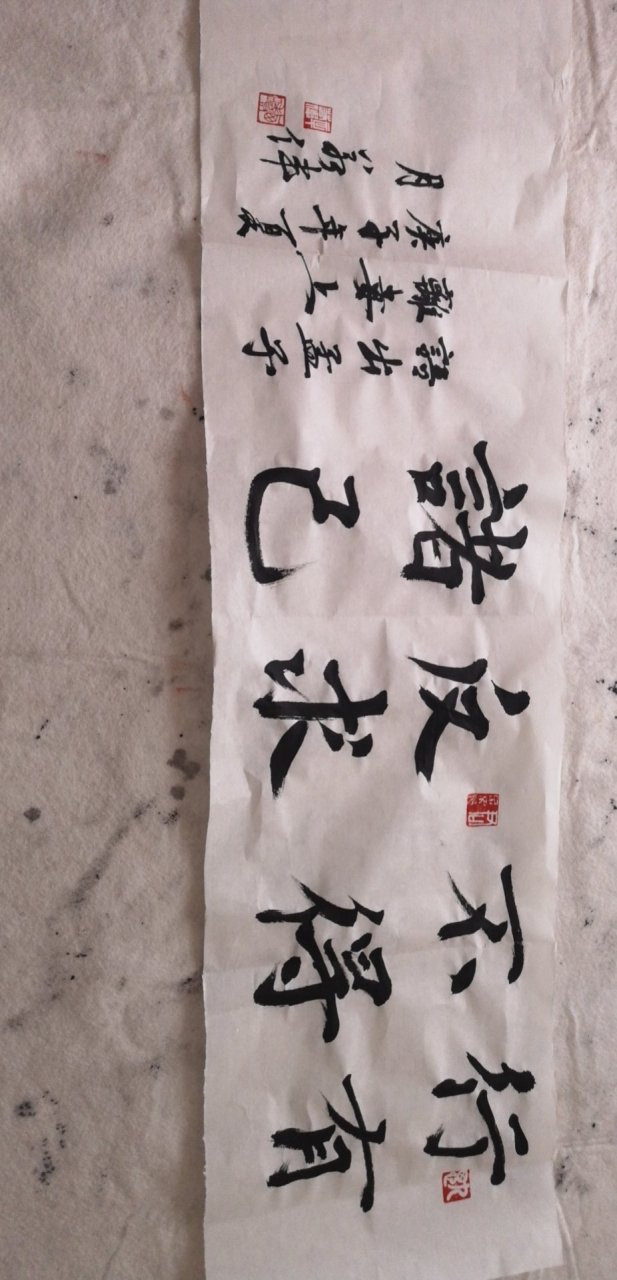 行有
不得
反求
諸己
語出孟子
離婁上
庚子年夏
月